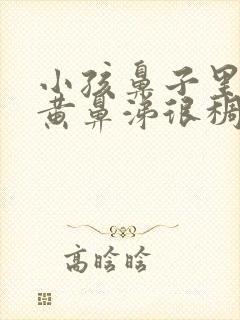 小孩鼻子里
黄鼻涕很稠
高晗晗